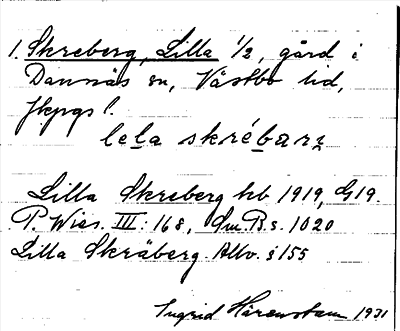 1. Skreberg, Lilla 1/2, gård i
Dannäs sn, Västbo hd,
Jkpgs l.
leḷa skrébarɀ
Lilla Skreberg hb 1919, G19.
P. Wies. III: 168, Sm. B. s. 1020
Lilla Skräberg. Allv. s 155
Ingrid Härenstam 1931